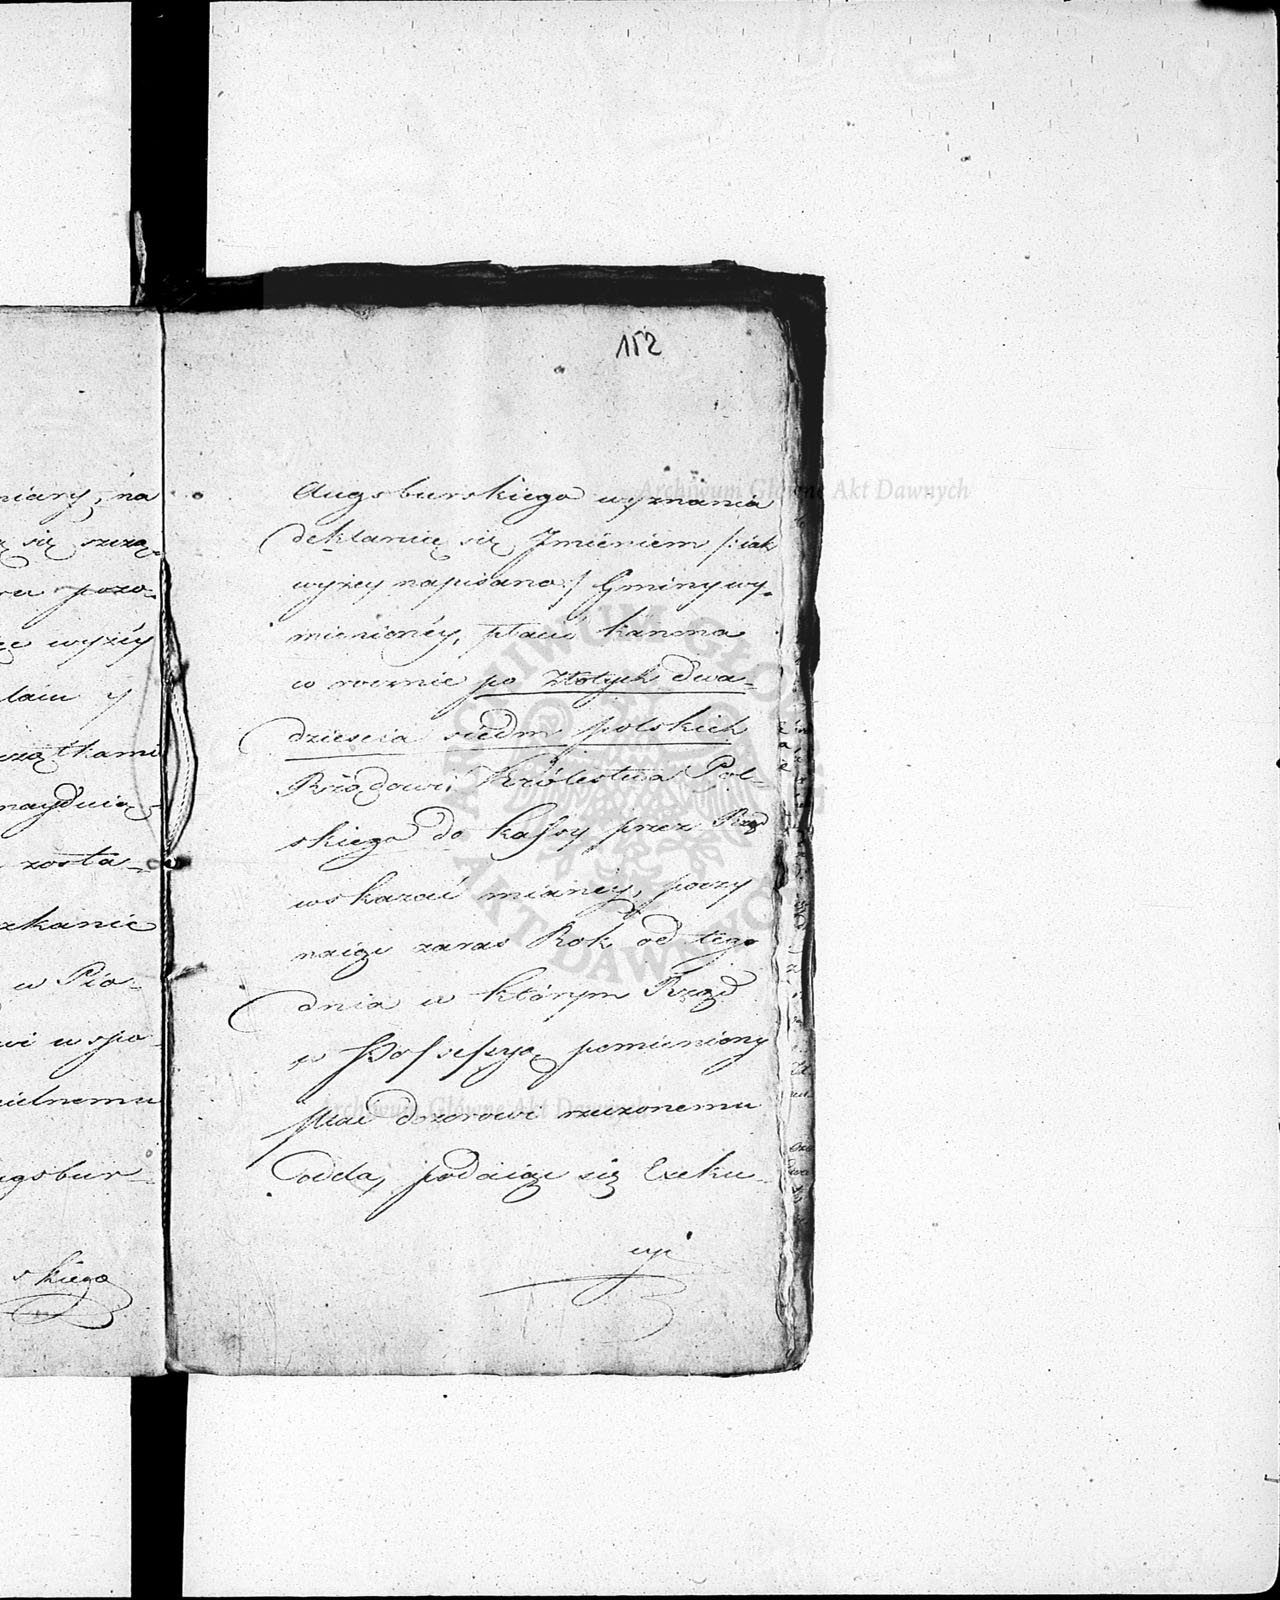 152
niary, na
się szczą-
pozo-
wyżéy
y
czątkami
nayduią-
zosta-
zkanie
w Pio-
wspo-
ielnemu
ugsbur-
skiego
Augsburskiego wyznania
deklaruię się Jmieniem /:iak
wyżey napisano:/ Gminy wy-
mienionéy, płacić kanona
w rocznie po Złotych dwa-
dzieścia siedm polskich
Rządowi Królestwa Pol-
skiego do kassy przez Rząd
wskazać mianéy, poczy
naiąc zaraz Rok od tego
dnia w którym Rząd
w Possessyą pomieniony
plac dozorowi rzeczonemu
odda, poddaiąc się Exeku-
cyi
Archiwum Główne Akt Dawnych
Archiwum Główne Akt Dawnych
ARCHIWUM GŁÓWNE AKT DAWNYCH